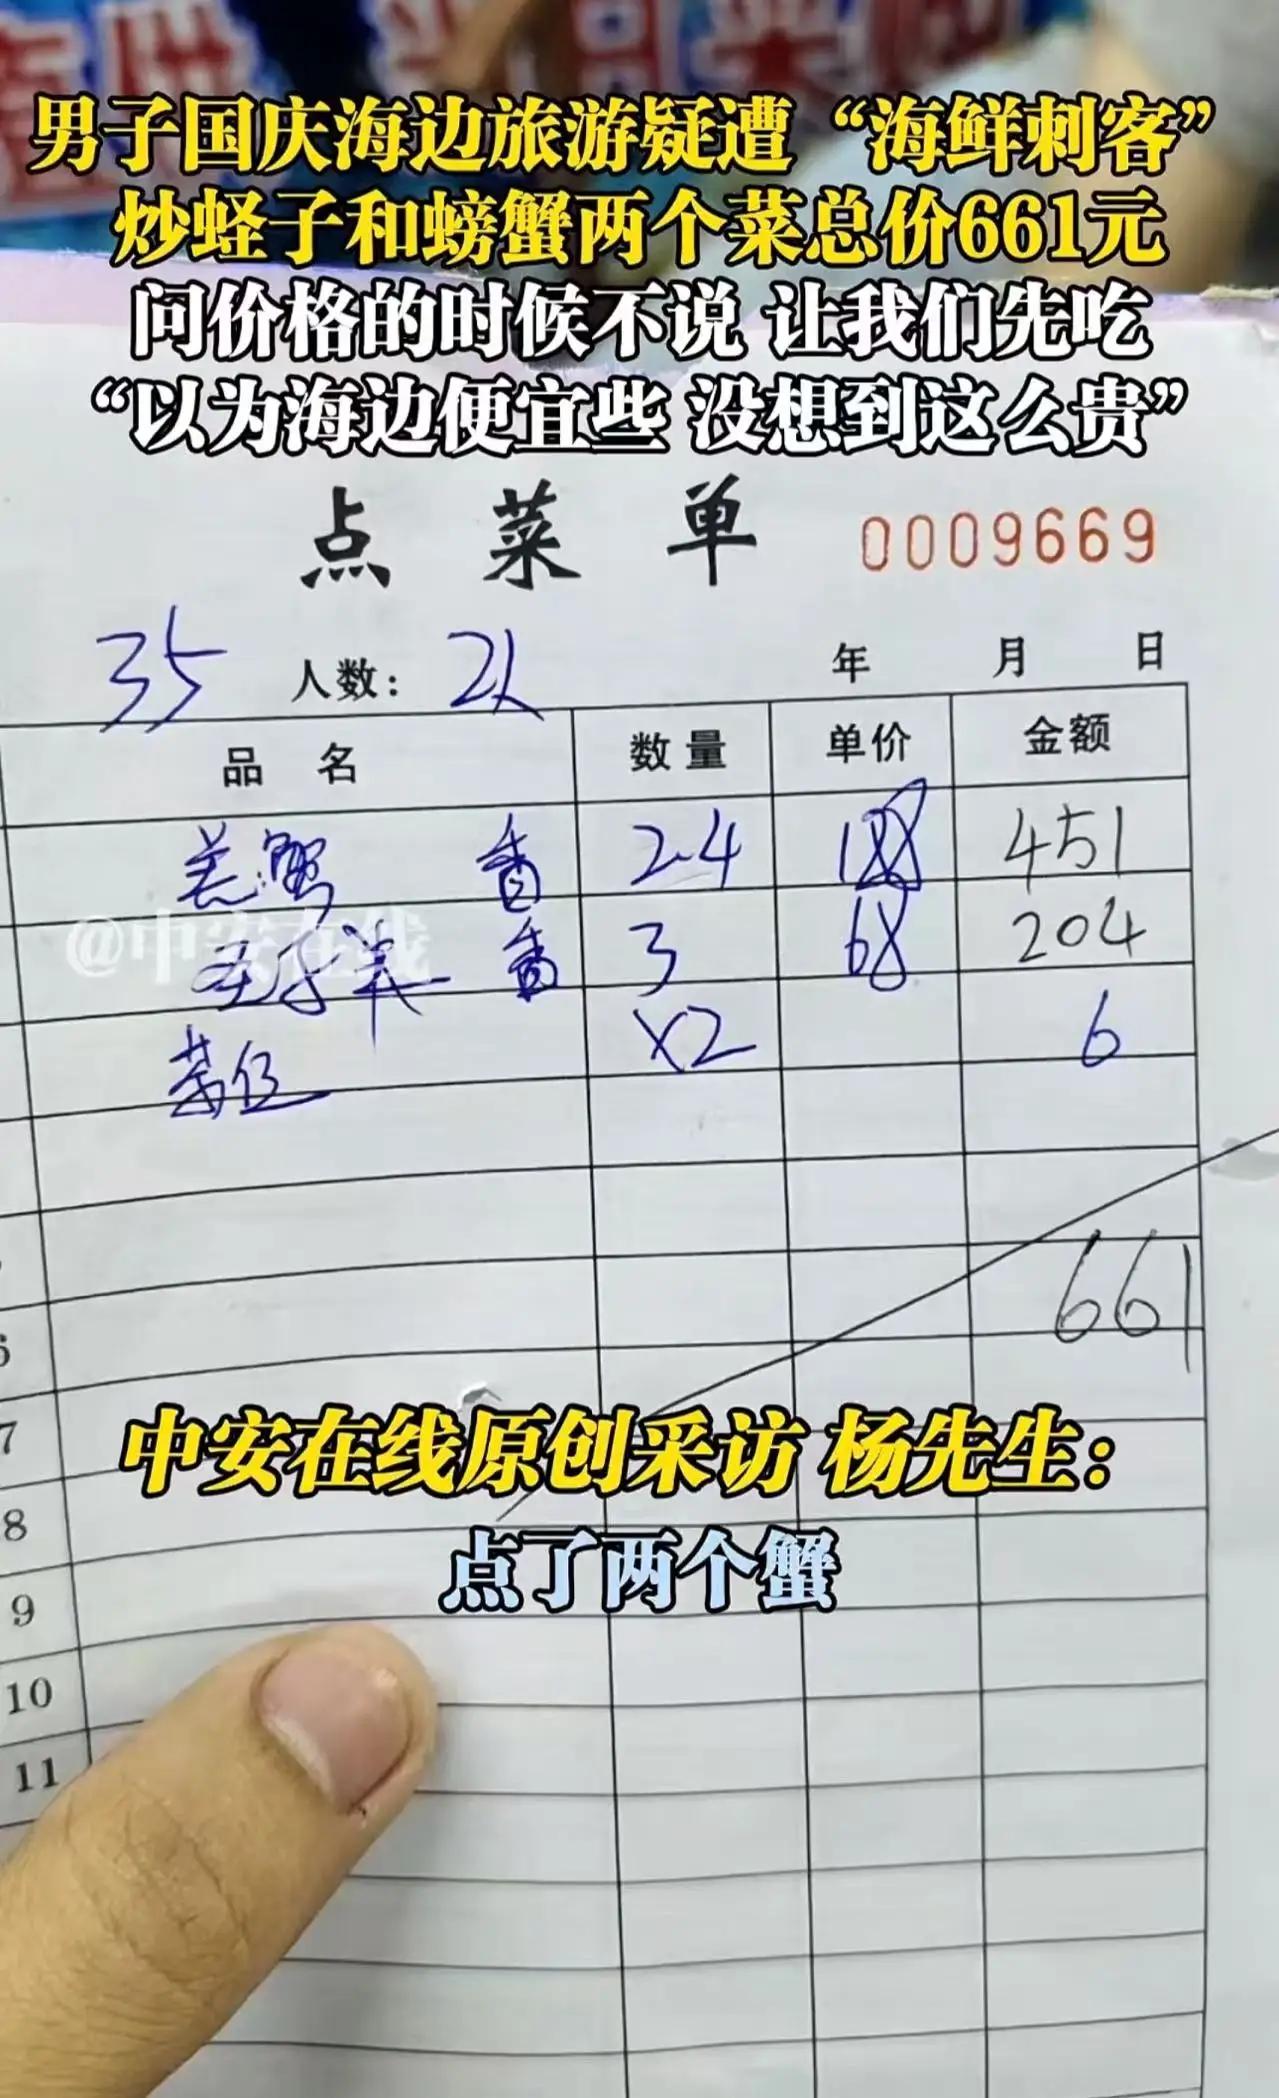 男子国庆海边旅游疑遭“海鲜刺客”
炒蛏子和螃蟹两个菜总价661元
问价格的时候不说 让我们先吃
“以为海边便宜些 没想到这么贵”
点菜单 0009669
35 人数： 2人 年 月 日
品名 数量 单价 金额
羔蟹 香 2.4 188 451
@中安在线
香 3 68 204
茶位 x2 6
661
6
7
中安在线原创采访 杨先生：
8
点了两个蟹
9
10
11